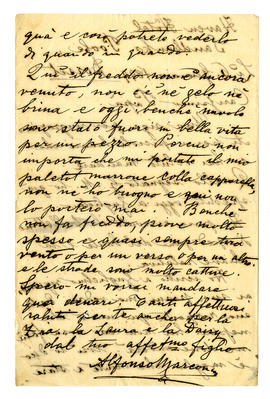 quà e così potrete vederlo
di quando in quando.
Quì il freddo non è ancora
venuto, non c'è nè gelo nè
brina e oggi, benchè nuvolo
sono stato fuori in bella vita
per un pezzo. Percui non
importa che mi portate il mio
paletot marrone colla
non ne ho bisogno e qui non
lo porterò mai. Benchè
non fa freddo, piove molto
spesso e quasi sempre tira
vento o per un verso o per un altro
e le strade sono molto cattive
Spero mi vorrai mandare
qua denari. Tanti affettuosi
saluti per te, anche per la
Zia, la Laura e la Daisy
dal tuo affezmo figlio
Alfonso Marconi